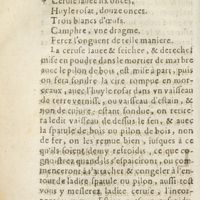 Ceruse lauee six onces,
Huyle rosat, douze onces.
Trois blancs d'œufs.
Camphre, vne dragme.
Ferez l'onguent de telle maniere.
La ceruse lauee & seichee, & derechef
mise en poudre dans le mortier de marbre
auec le pilon de bois, est mise à part, puis
on fera fondre la cire rompue en mor-
ceaux, auec l'huyle rosat dans vn vaisseau
de terre verniss, ou vaisseau d'estain, &
non de cuiure: estant fondue, on retire-
ra ledit vaisseau de dessus le feu, & auec
la spatule de bois ou pilon de bois, non
de fer, on les remue bien, iusques à ce
qu'ils soyent demy refroidis: ce que co-
gnoistrez quand ils s'espaiciront, ou com-
menceront à s'attacher & congeler à l'en-
tour de ladite spatule ou pilon, aussi tost
vous y meslerez ladite ceruse, l'incor-